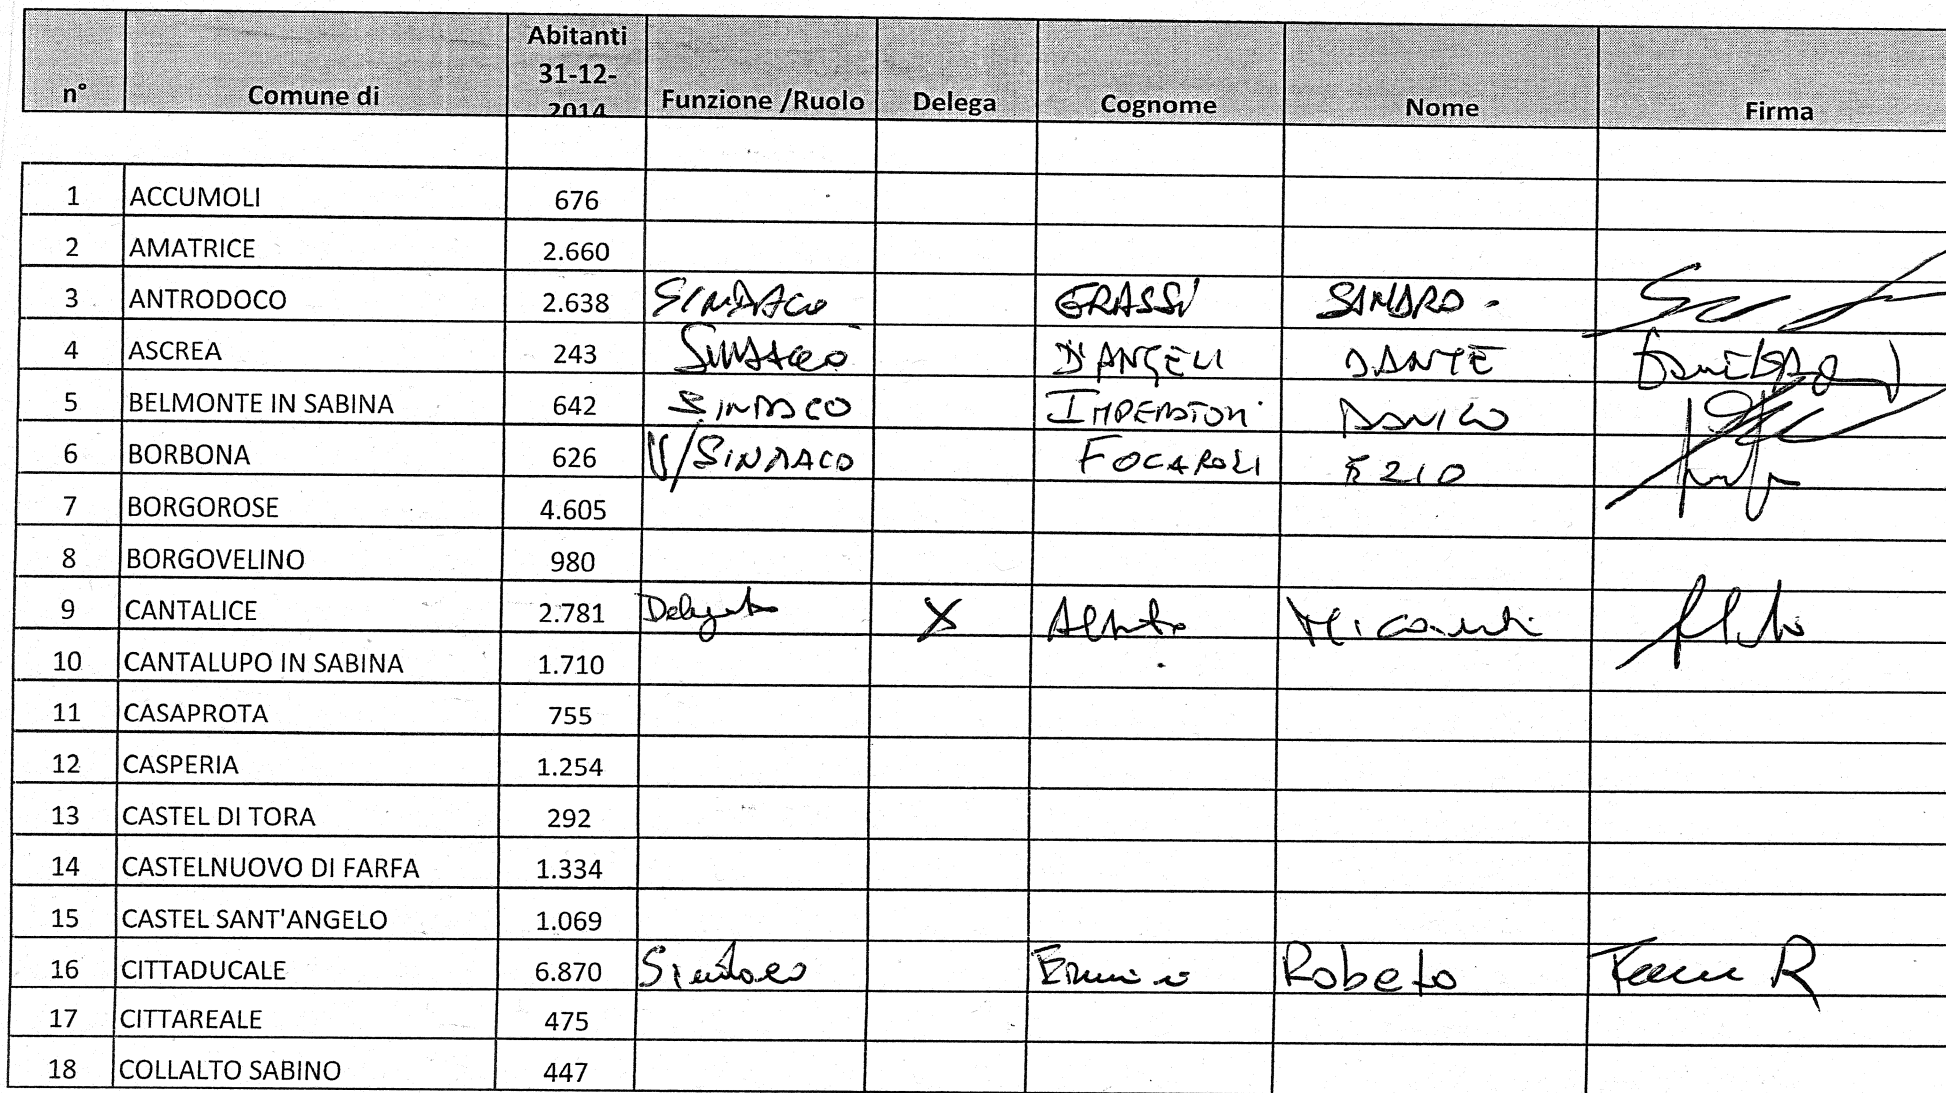 n° Comune di Abitanti 31-12-2014 Funzione /Ruolo Delega Cognome Nome Firma
1 ACCUMOLI 676
2 AMATRICE 2.660
3 ANTRODOCO 2.638 SINDACO GRASSI SANDRO
4 ASCREA 243 SINDACO D'ANGELI DANTE
5 BELMONTE IN SABINA 642 SINDACO IMPERATORI DANILO
6 BORBONA 626 V/SINDACO FOCAROLI
7 BORGOROSE 4.605
8 BORGOVELINO 980
9 CANTALICE 2.781 Delegato X Alberto
10 CANTALUPO IN SABINA 1.710
11 CASAPROTA 755
12 CASPERIA 1.254
13 CASTEL DI TORA 292
14 CASTELNUOVO DI FARFA 1.334
15 CASTEL SANT'ANGELO 1.069
16 CITTADUCALE 6.870 Sindaco Roberto
17 CITTAREALE 475
18 COLLALTO SABINO 447